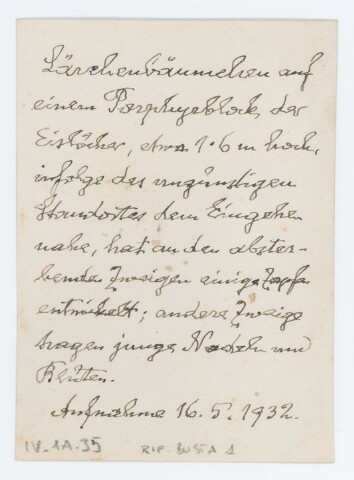 Lärchenbäumchen auf
einem Porphyrblock der
Eislöcher, etwa 1·6 m hoch,
infolge des ungünstigen
Standortes dem Eingehen
nahe, hat an den abster-
benden Zweigen einige Zapfen
entwickelt; andere Zweige
tragen junge Nadeln und
Blüten.
Aufnahme 16. 5. 1932.
IV-1A-35 RIP. BUSTA 1